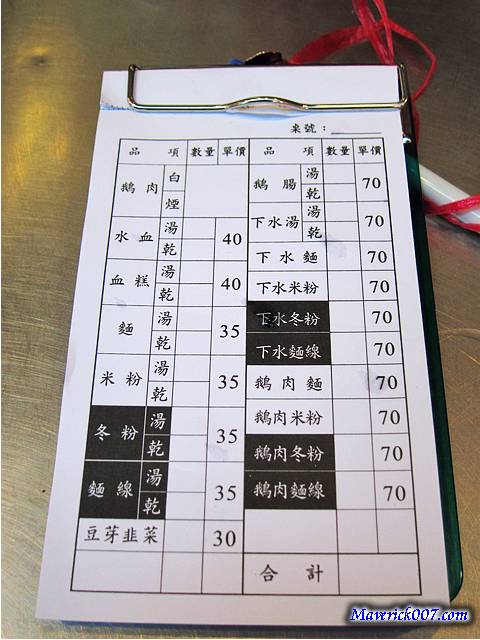 桌號：
品項 數量 單價 品項 數量 單價
鵝肉 白 煙
水血 湯 乾 40
血糕 湯 乾 40
麵 湯 乾 35
米粉 湯 乾 35
冬粉 湯 乾 35
麵線 湯 乾 35
豆芽韭菜 30
鵝腸 湯 乾 70
下水湯 湯 乾 70
下水麵 70
下水米粉 70
下水冬粉 70
下水麵線 70
鵝肉麵 70
鵝肉米粉 70
鵝肉冬粉 70
鵝肉麵線 70
合計
Maverick007.com